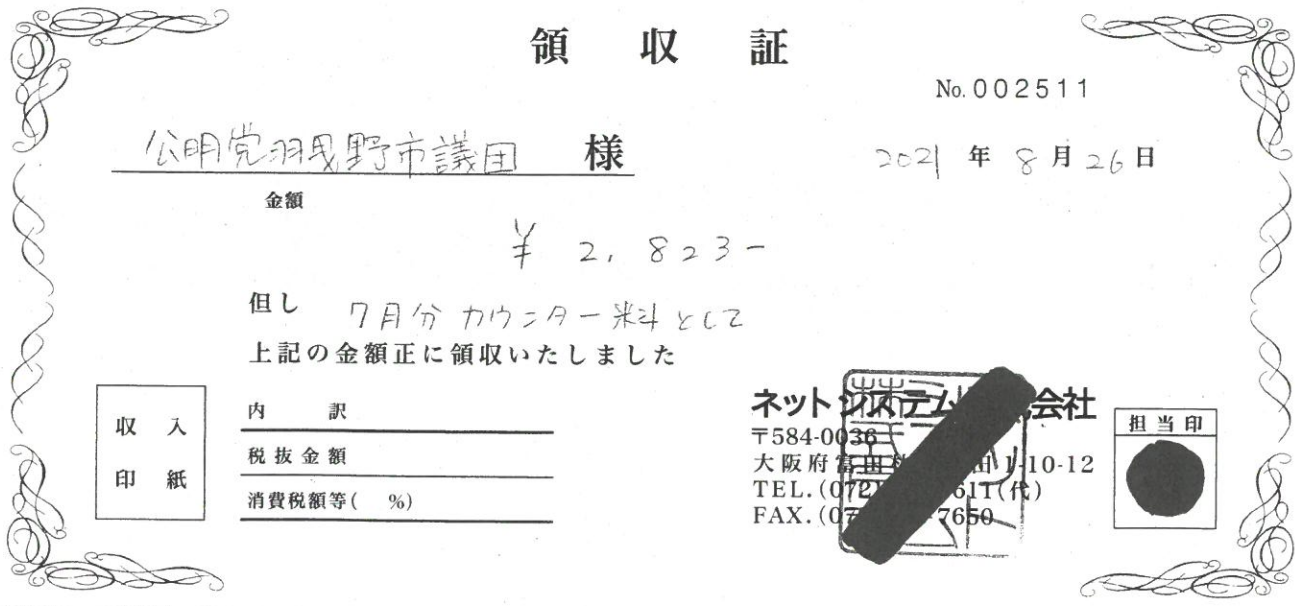 領収証
No.002511
公明党羽曳野市議団 様
2021年8月26日
金額
¥2,823-
但し 7月分カウンター料として
上記の金額正に領収いたしました
収入
印紙
内訳
税抜金額
消費税額等( %)
ネットシステム 会社
〒584-0036
大阪府富田 田1-10-12
TEL.(072 611(代)
FAX.(07 7650
担当印